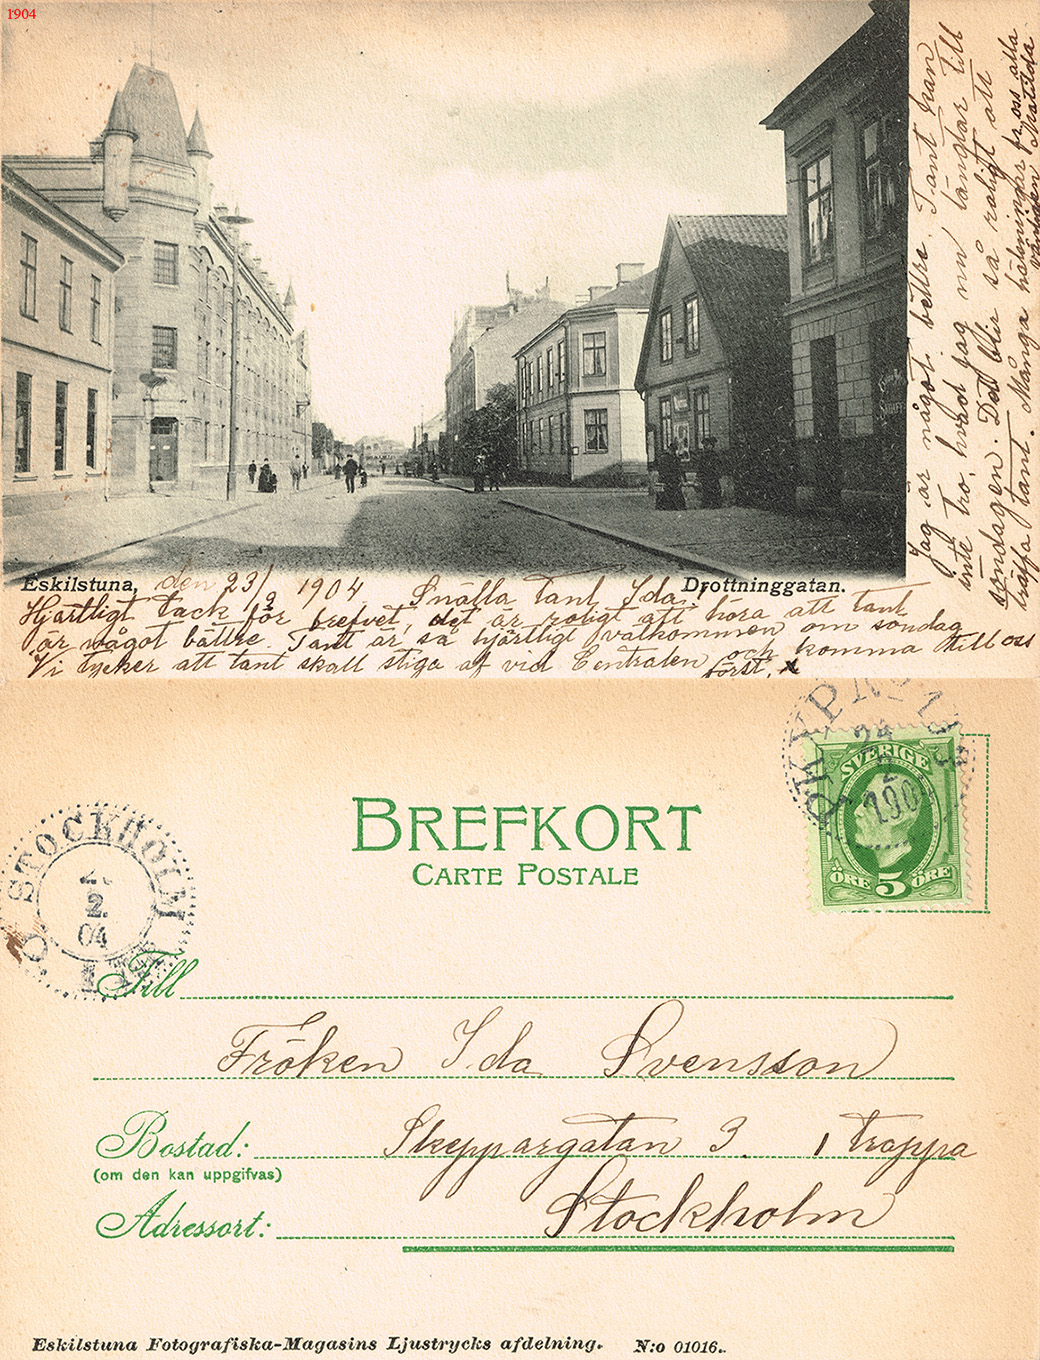 1904
Eskilstuna, den 23/2 1904 Snälla tant Ida! Drottninggatan.
Hjärtligt tack för brefvet, det är roligt att höra att tant
är något bättre. Tant är så hjärtligt välkommen om söndag
Vi tycker att tant skall stiga af vid Centralen och komma till oss
först.
Jag är något bättre. Tant kan
inte tro, hvad jag nu längtar till
söndagen. Det blir så roligt att
träffa tant. Många hälsningar fr. oss alla
vänligen Matilda
BREFKORT
CARTE POSTALE
SVERIGE
5
ÖRE ÖRE
24
2
190
STOCKHOLM
2
04
Till
Fröken Ida Svensson
Bostad: Skeppargatan 3. 1 trappa
(om den kan uppgifvas)
Adressort: Stockholm
Eskilstuna Fotografiska-Magasins Ljustrycks afdelning. N:o 01016.